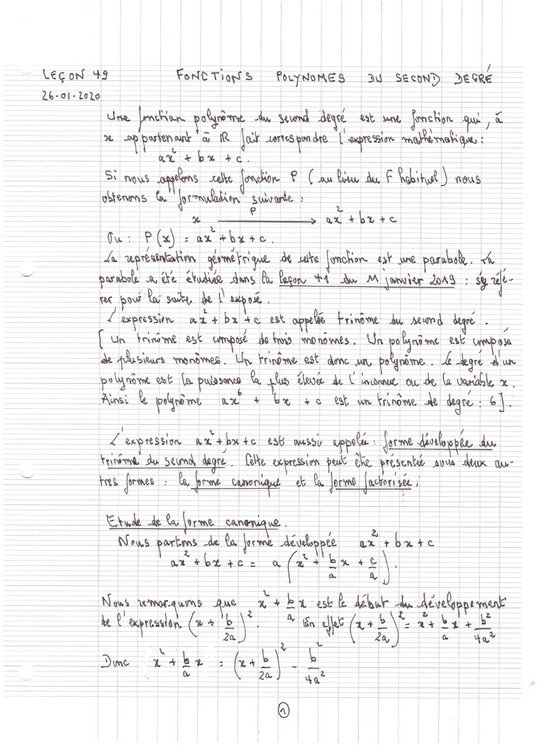 LEÇON 49 FONCTIONS POLYNOMES DU SECOND DEGRÉ
26-01-2020
Une fonction polynôme du second degré est une fonction qui, à
x appartenant à R fait correspondre l'expression mathématique :
ax² + bx + c.
Si nous appelons cette fonction P (au lieu du F habituel) nous
obtenons la formulation suivante :
x —P→ ax² + bx + c
Ou : P(x) = ax² + bx + c.
La représentation géométrique de cette fonction est une parabole. La
parabole a été étudiée dans la leçon 41 du 11 janvier 2019 : s'y réfé-
rer pour la suite de l'exposé.
L'expression ax² + bx + c est appelée trinôme du second degré.
[Un trinôme est composé de trois monômes. Un polynôme est composé
de plusieurs monômes. Un trinôme est donc un polynôme. Le degré d'un
polynôme est la puissance la plus élevée de l'inconnue ou de la variable x.
Ainsi le polynôme ax⁶ + bx + c est un trinôme de degré : 6].
L'expression ax² + bx + c est aussi appelée : forme développée du
trinôme du second degré. Cette expression peut être présentée sous deux au-
tres formes : la forme canonique et la forme factorisée.
Etude de la forme canonique.
Nous partons de la forme développée ax² + bx + c
ax² + bx + c = a(x² + b/a x + c/a).
Nous remarquons que x² + b/a x est le début du développement
de l'expression (x + b/2a)². En effet (x + b/2a)² = x² + b/a x + b²/4a²
Donc x² + b/a x = (x + b/2a)² - b²/4a²
1